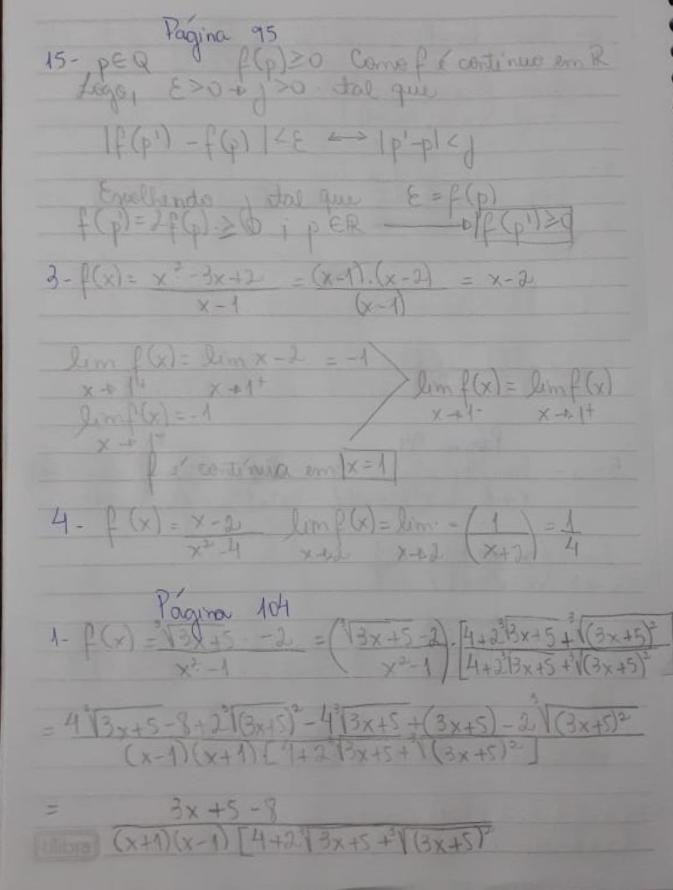 Página 95
15- p∈Q f(p)≥0 Como f é contínuo em R
Logo, ε>0 → j>0 tal que
|f(p') - f(p)|<ε ↔ |p'-p|<j
Escolhendo j tal que ε=f(p)
f(p')=2f(p)≥0 ; p∈R → f(p')≥0
3- f(x)= x²-3x+2/x-1 = (x-1).(x-2)/(x-1) = x-2
lim x→1⁺ f(x)= lim x→1⁺ x-2 = -1
lim x→1⁻ f(x)=-1
lim x→1⁻ f(x)= lim x→1⁺ f(x)
f é contínua em x=1
4- f(x)= x-2/x²-4 lim x→2 f(x)= lim x→2 -(1/x+2) = 1/4
Página 104
1- f(x)= ³√3x+5 -2/x²-1 = (³√3x+5-2/x²-1).[4+2³√3x+5+³√(3x+5)²/[4+2³√3x+5+³√(3x+5)²
= 4³√3x+5-8+2³√(3x+5)²-4³√3x+5+(3x+5)-2³√(3x+5)²/(x-1)(x+1)[4+2³√3x+5+³√(3x+5)²]
= 3x+5-8/(x+1)(x-1)[4+2³√3x+5+³√(3x+5)²